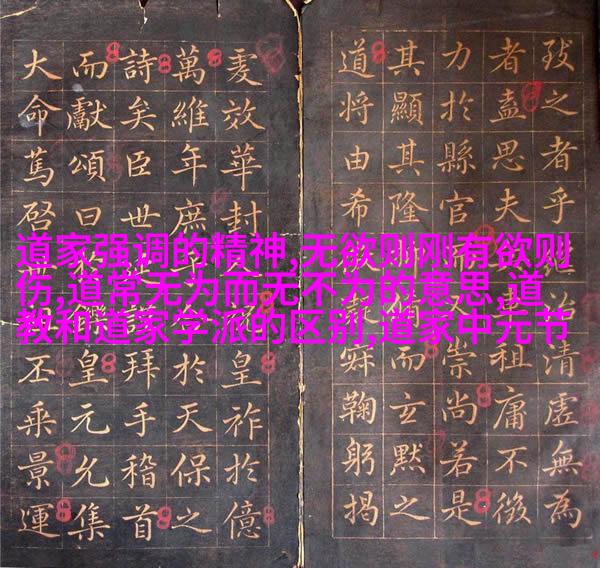 道家强调的精神,无欲则刚有欲则
伤,道常无为而无不为的意思,道
教和道家学派的区别,道家中元节
之者乎治清虛無為
者盍思夫祖庸不徵
力於縣官又崇尚若是
其顯其隆而玄默之
道將由希鞠躬揭
效華封皇祚於億
萬維年庶於天保之
詩矣臣世拜手稽首
而獻頌曰皇元允集
大命篤啓丕乘景運